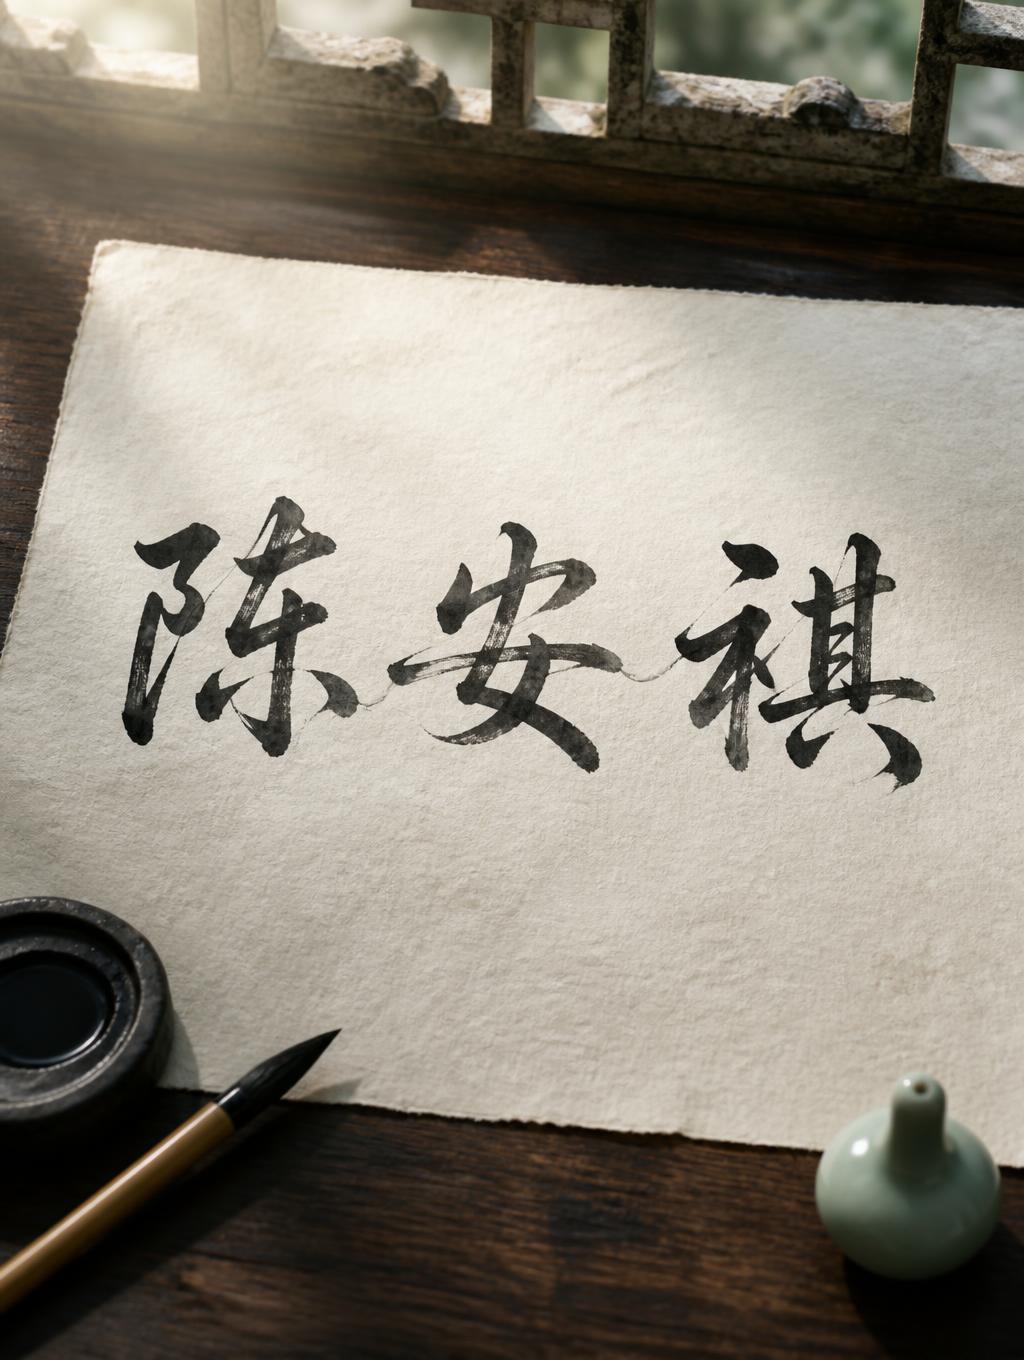 陈安祺